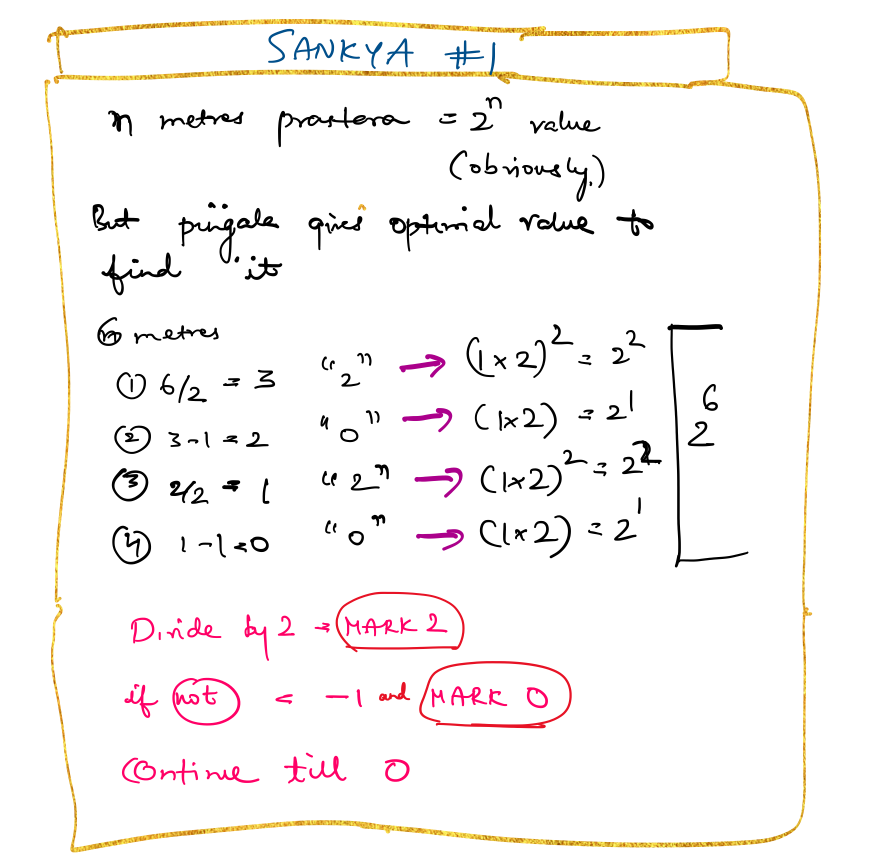 SANKYA #1
n metres prastera = 2ⁿ value
(obviously.)
But pingala gives optimal value to
find it
6 metres
① 6/2 = 3 "2" → (1×2)² = 2²
② 3-1=2 "0" → (1×2) = 2¹
③ 2/2 = 1 "2" → (1×2)² = 2²
④ 1-1=0 "0" → (1×2) = 2¹
2⁶
Divide by 2 → MARK 2
if not = -1 and MARK 0
Continue till 0